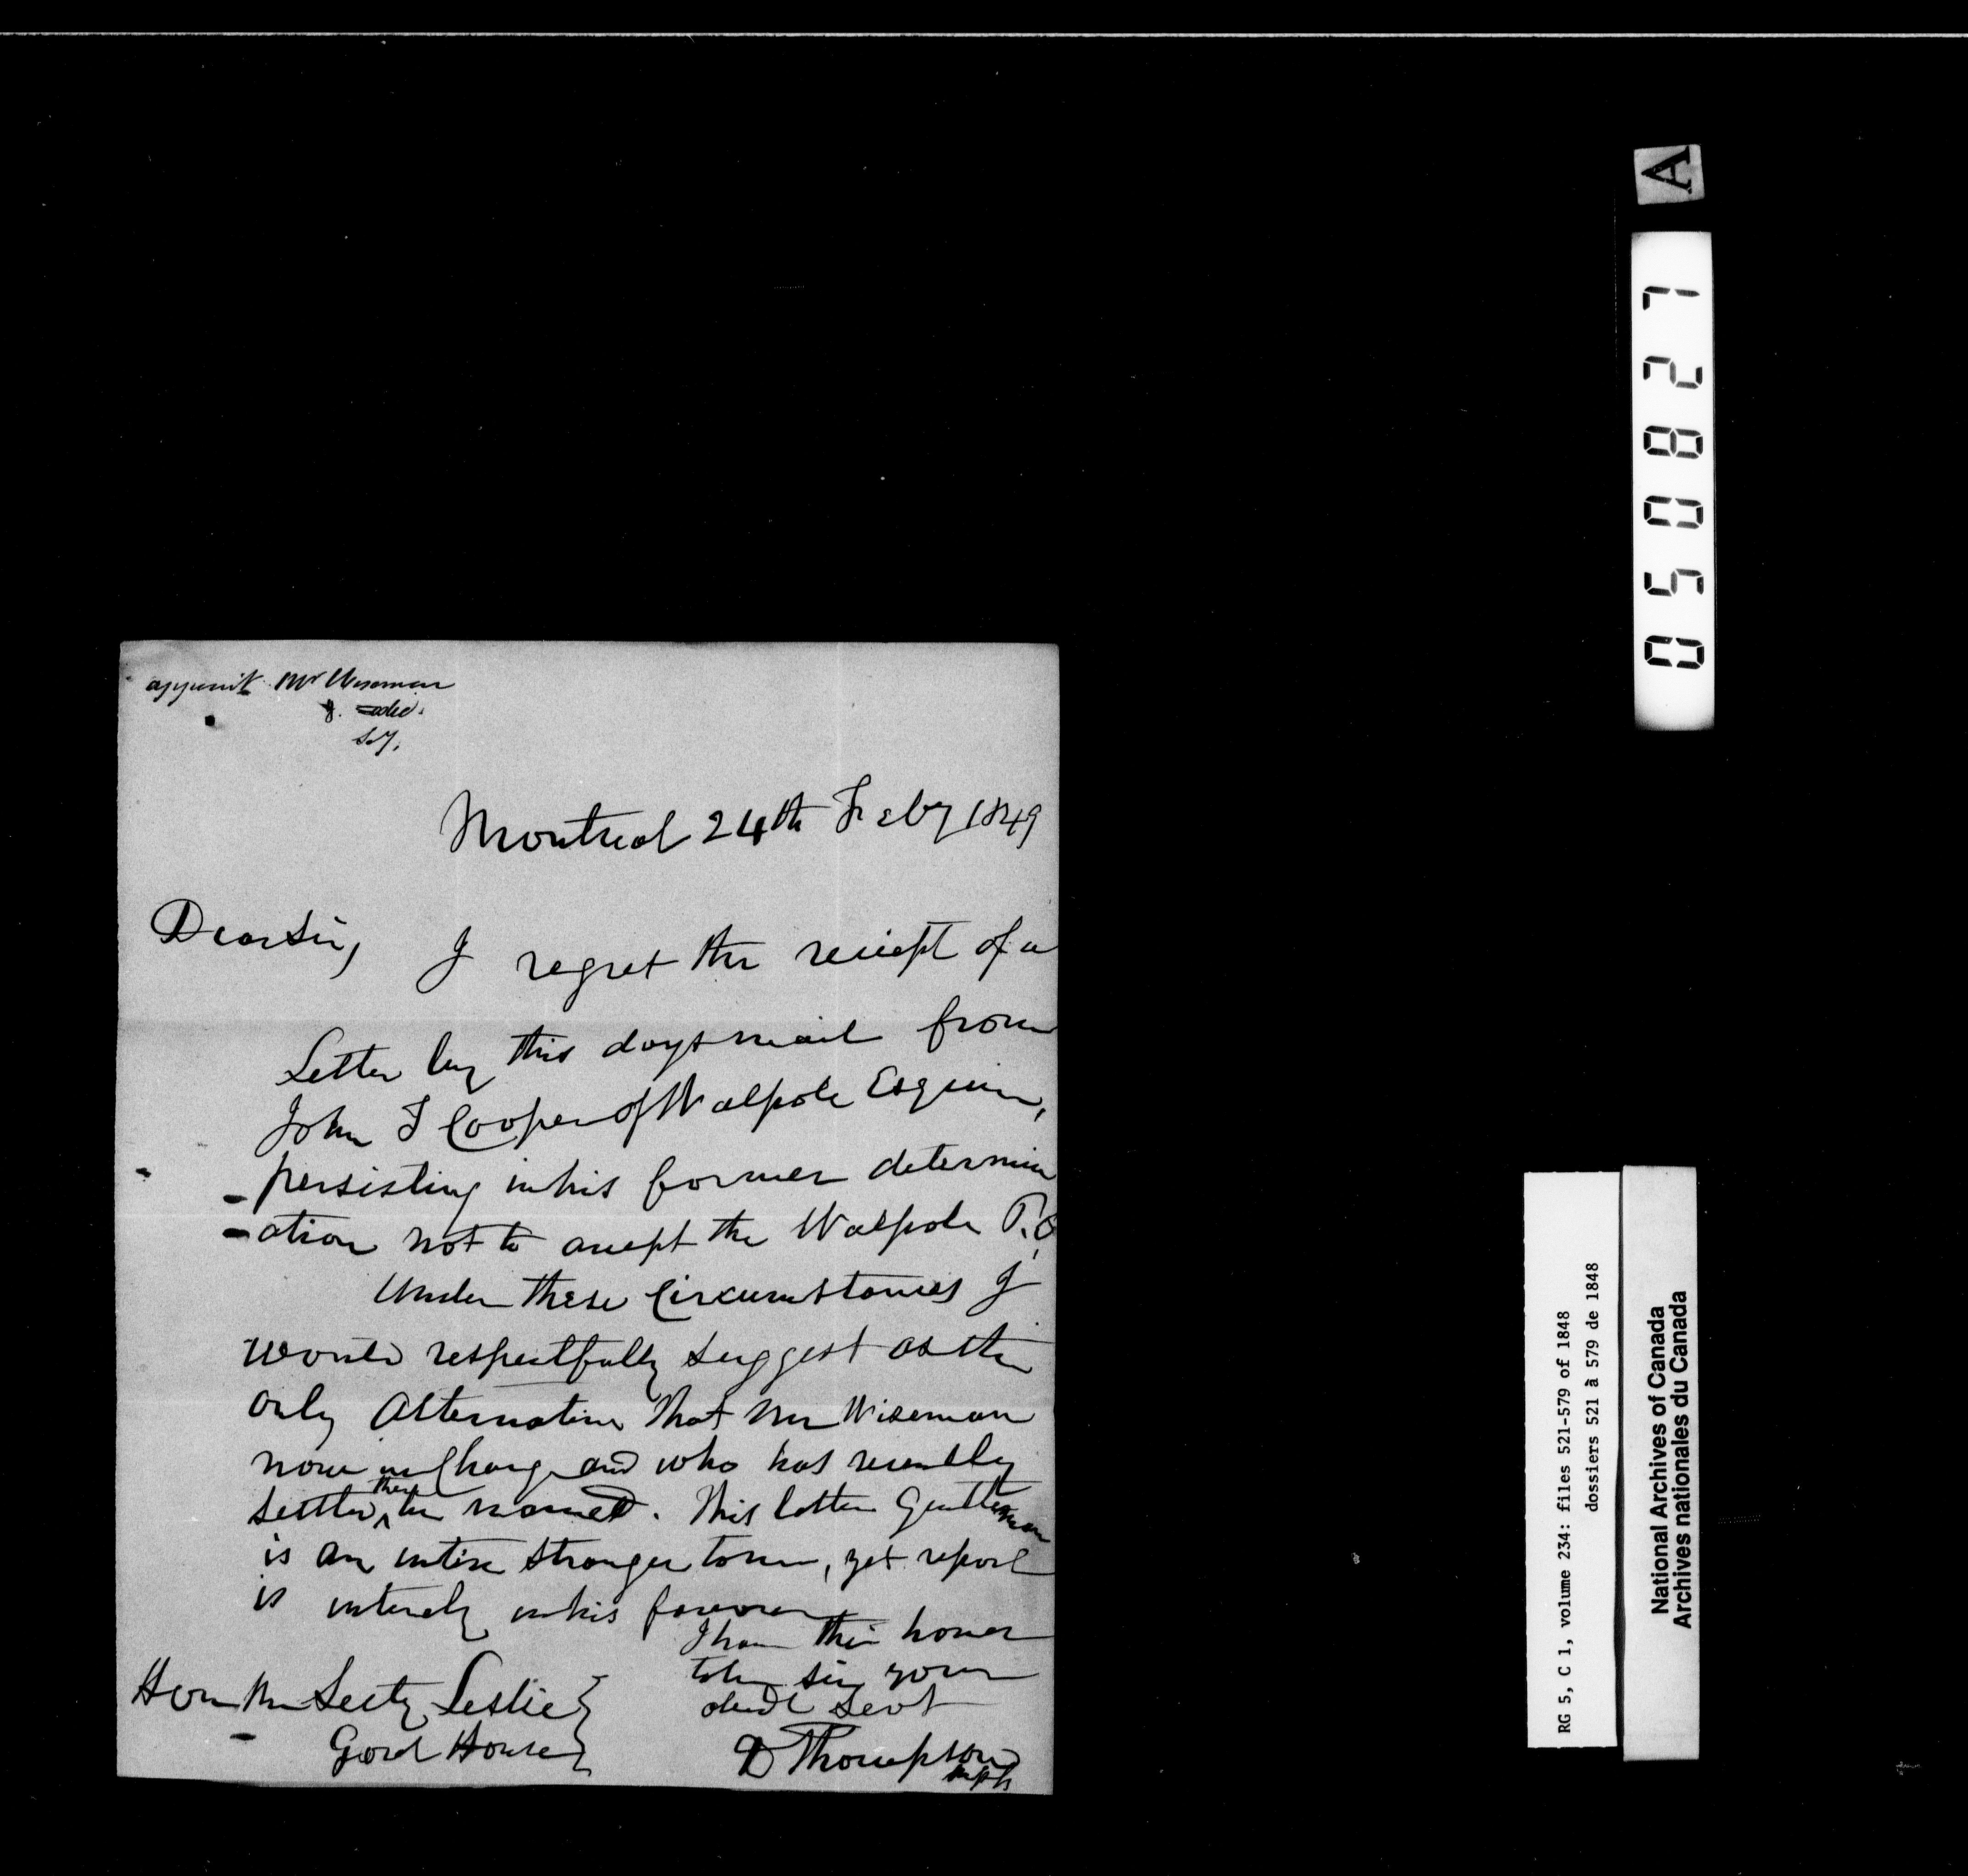 appoint Mr Wiseman
Montreal 24th Feby 1849
Dear Sir, I regret the reciept of a
Letter by this days mail from
John F Cooper of Walpole Esquire,
persisting in his former determin
-ation not to accept the Walpole P.O.
Under these Circumstances I
would respectfully suggest as the
only Alternative that Mr Wiseman
now in Charge and who has recently
settled there be named. This latter Gentleman
is an intire stranger to me, yet report
is intirely in his favour
I have the honor
to be Sir your
obedt Servt
D Thompson
mpp
Hon Mr Secty Leslie
Govt House
A
050827
RG 5, C 1, volume 234: files 521-579 of 1848
dossiers 521 à 579 de 1848
National Archives of Canada
Archives nationales du Canada